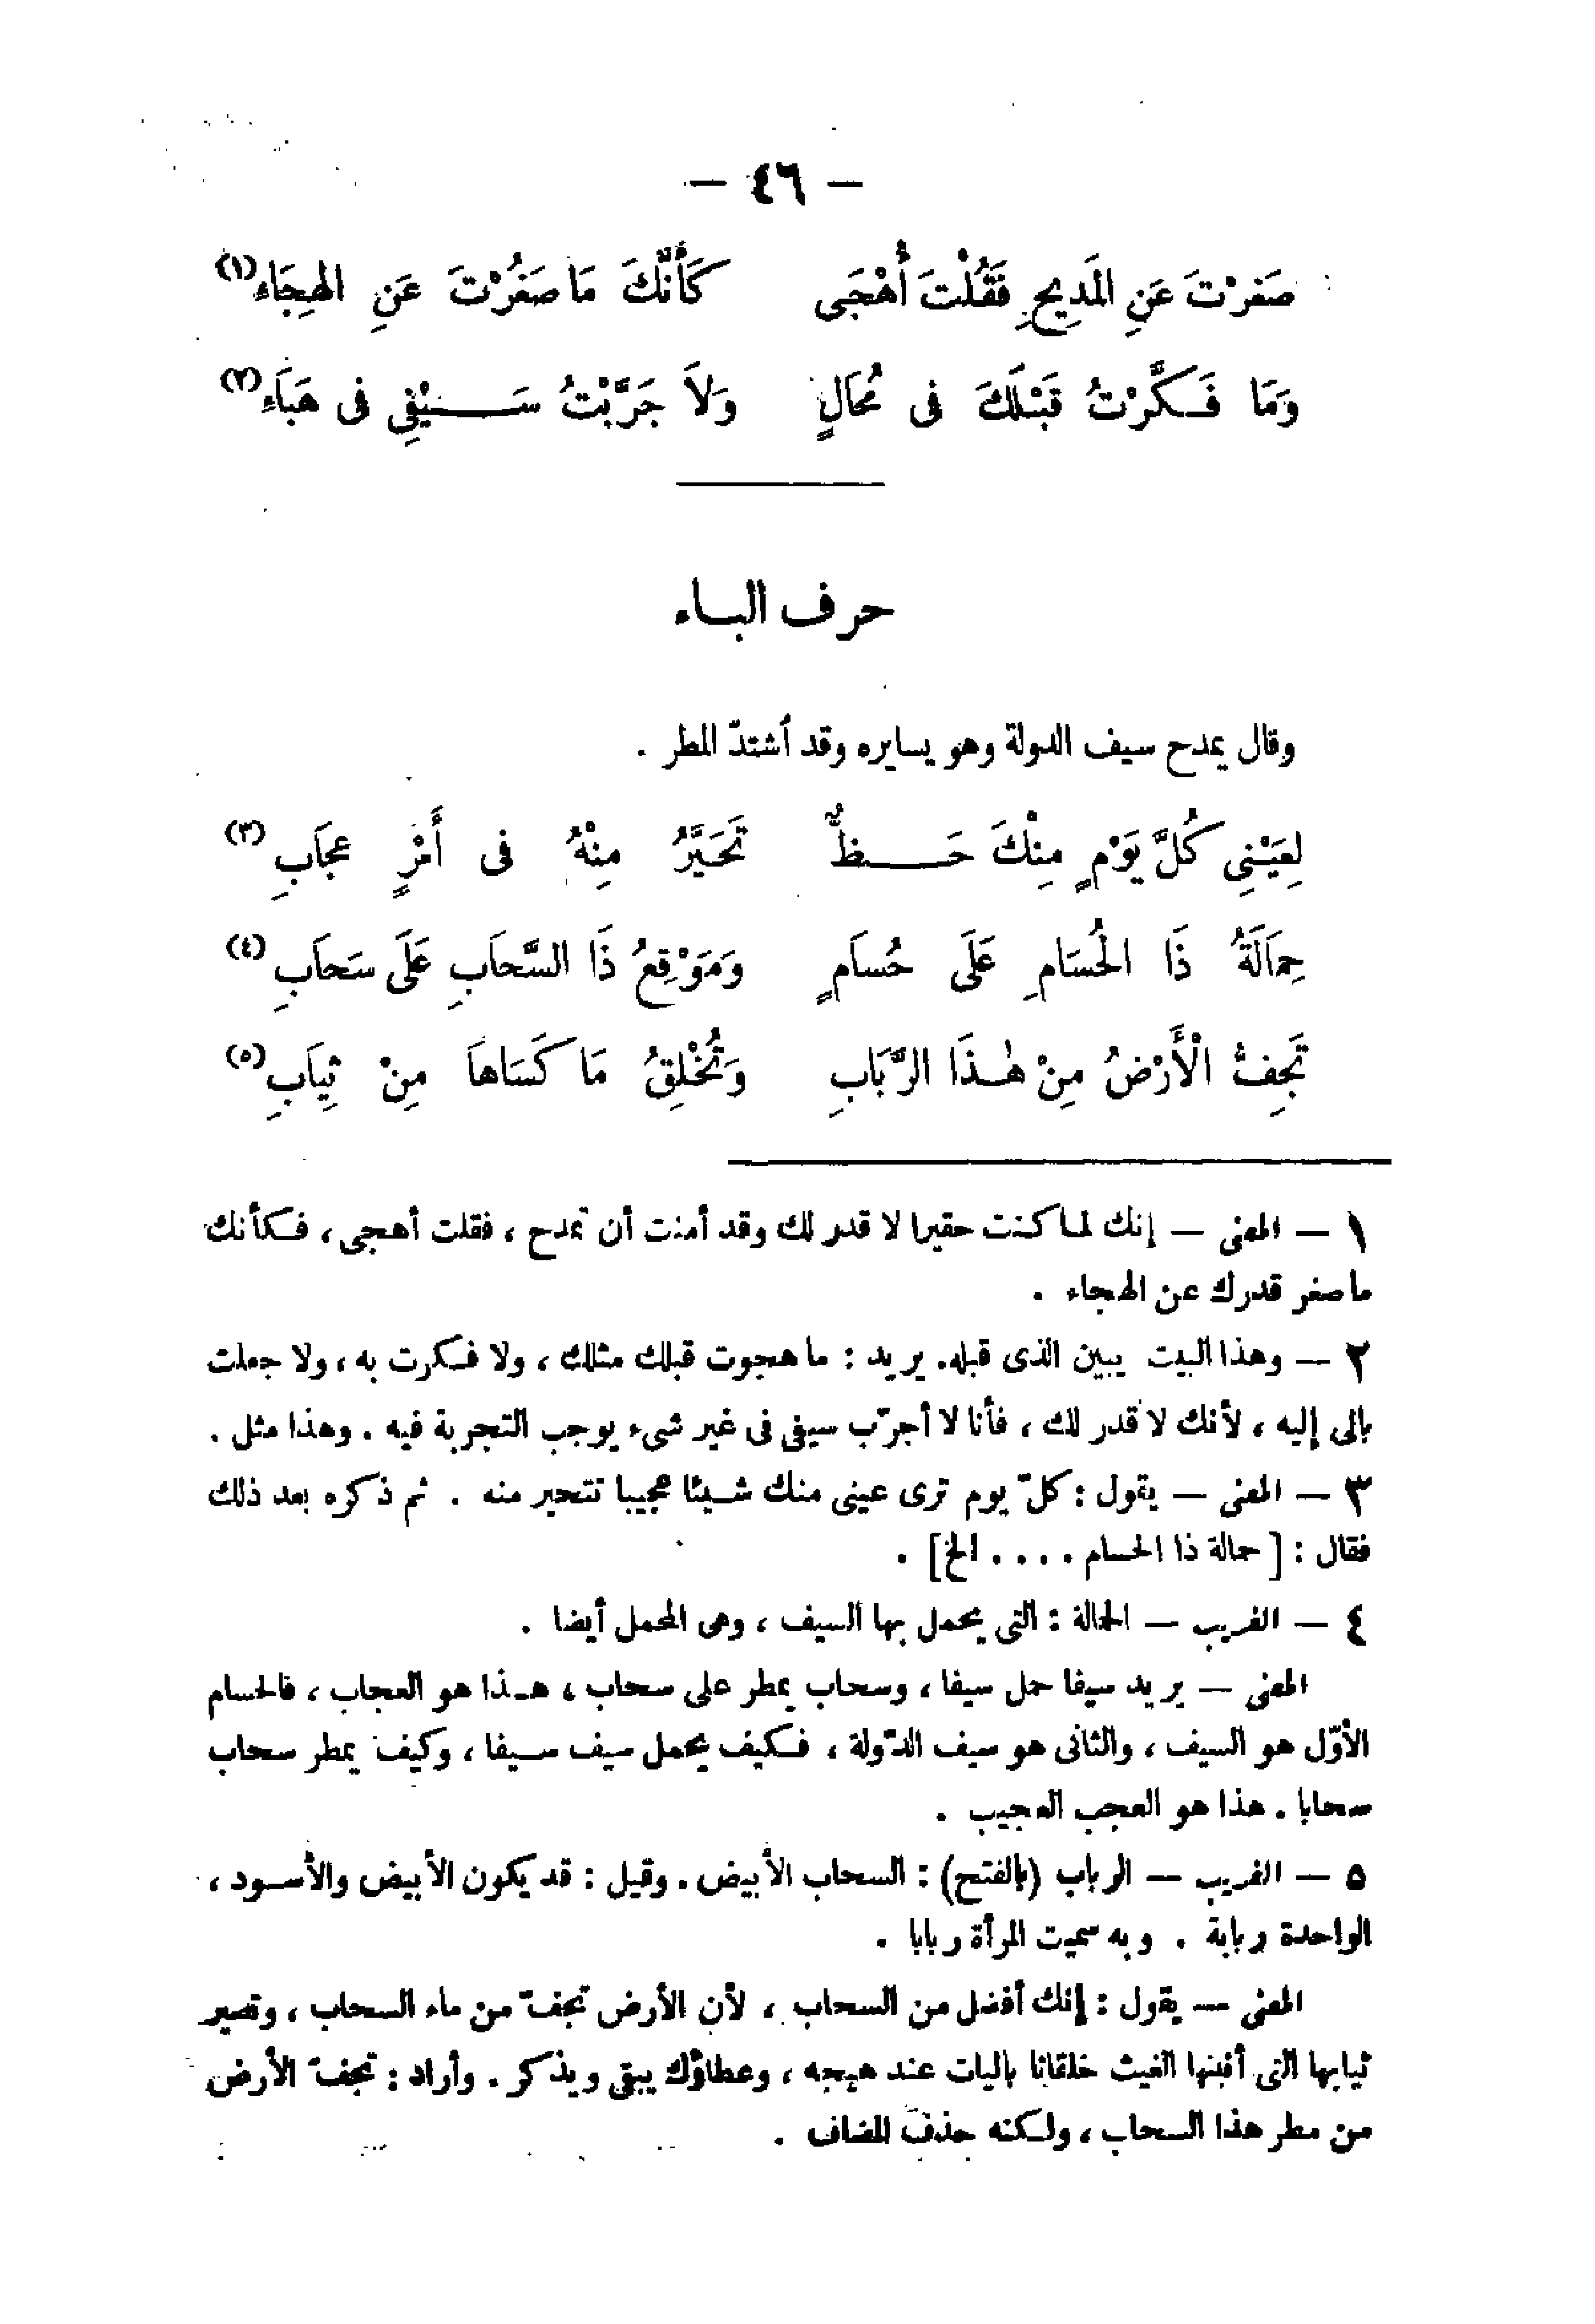 — ٤٦ —
صَغُرْتَ عَنِ المَدِيحِ فَقُلْتَ أُهْجَى كَأَنَّكَ مَا صَغُرْتَ عَنِ الهِجَاءِ (١)
وَمَا فَكَّرْتُ قَبْلَكَ فى مُحَالٍ وَلاَ جَرَّبْتُ سَيْفِى فى هَبَاءِ (٢)
حرف الباء
وقال يمدح سيف الدولة وهو يسايره وقد أشتدّ المطر .
لِعَيْنِى كُلَّ يَوْمٍ مِنْكَ حَظٌّ تَحَيَّرُ مِنْهُ فى أَمْرٍ عجَابِ (٣)
حِمَالَةُ ذَا الحُسَامِ عَلَى حُسَامٍ وَمَوْقِعُ ذَا السَّحَابِ عَلَى سَحَابِ (٤)
تَجِفُّ الْأَرْضُ مِنْ هٰذَا الرَّبَابِ وَتُخْلِقُ مَا كَسَاهَا مِنْ ثِيَابِ (٥)
١ — المعنى — إنك لما كنت حقيرا لا قدر لك وقد أمنت أن تمدح ، فقلت أهجى ، فكأنك
ما صغر قدرك عن الهجاء .
٢ — وهذا البيت يبين الذى قبله. يريد : ما هجوت قبلك مثلك ، ولا فكرت به ، ولا جعلت
بالى إليه ، لأنك لا قدر لك ، فأنا لا أجرّب سيفى فى غير شىء يوجب التجربة فيه . وهذا مثل .
٣ — المعنى — يقول : كلّ يوم ترى عينى منك شيئا عجيبا تتحير منه . ثم ذكره بعد ذلك
فقال : [ حمالة ذا الحسام . . . . الخ] .
٤ — الغريب — الحمالة : التى يحمل بها السيف ، وهى المحمل أيضا .
المعنى — يريد سيفا حمل سيفا ، وسحاب يمطر على سحاب ، هذا هو العجاب ، فالحسام
الأوّل هو السيف ، والثانى هو سيف الدّولة ، فكيف يحمل سيف سيفا ، وكيف يمطر سحاب
سحابا . هذا هو العجب العجيب .
٥ — الغريب — الرباب (بالفتح) : السحاب الأبيض . وقيل : قد يكون الأبيض والأسود ،
الواحدة ربابة . وبه سميت المرأة ربابا .
المعنى — يقول : إنك أفضل من السحاب ، لأن الأرض تجفّ من ماء السحاب ، وتصير
ثيابها التى أنبتها الغيث خلقانا باليات عند هيجه ، وعطاؤك يبقى ويذكر . وأراد : تجفّ الأرض
من مطر هذا السحاب ، ولكنه حذف المضاف .